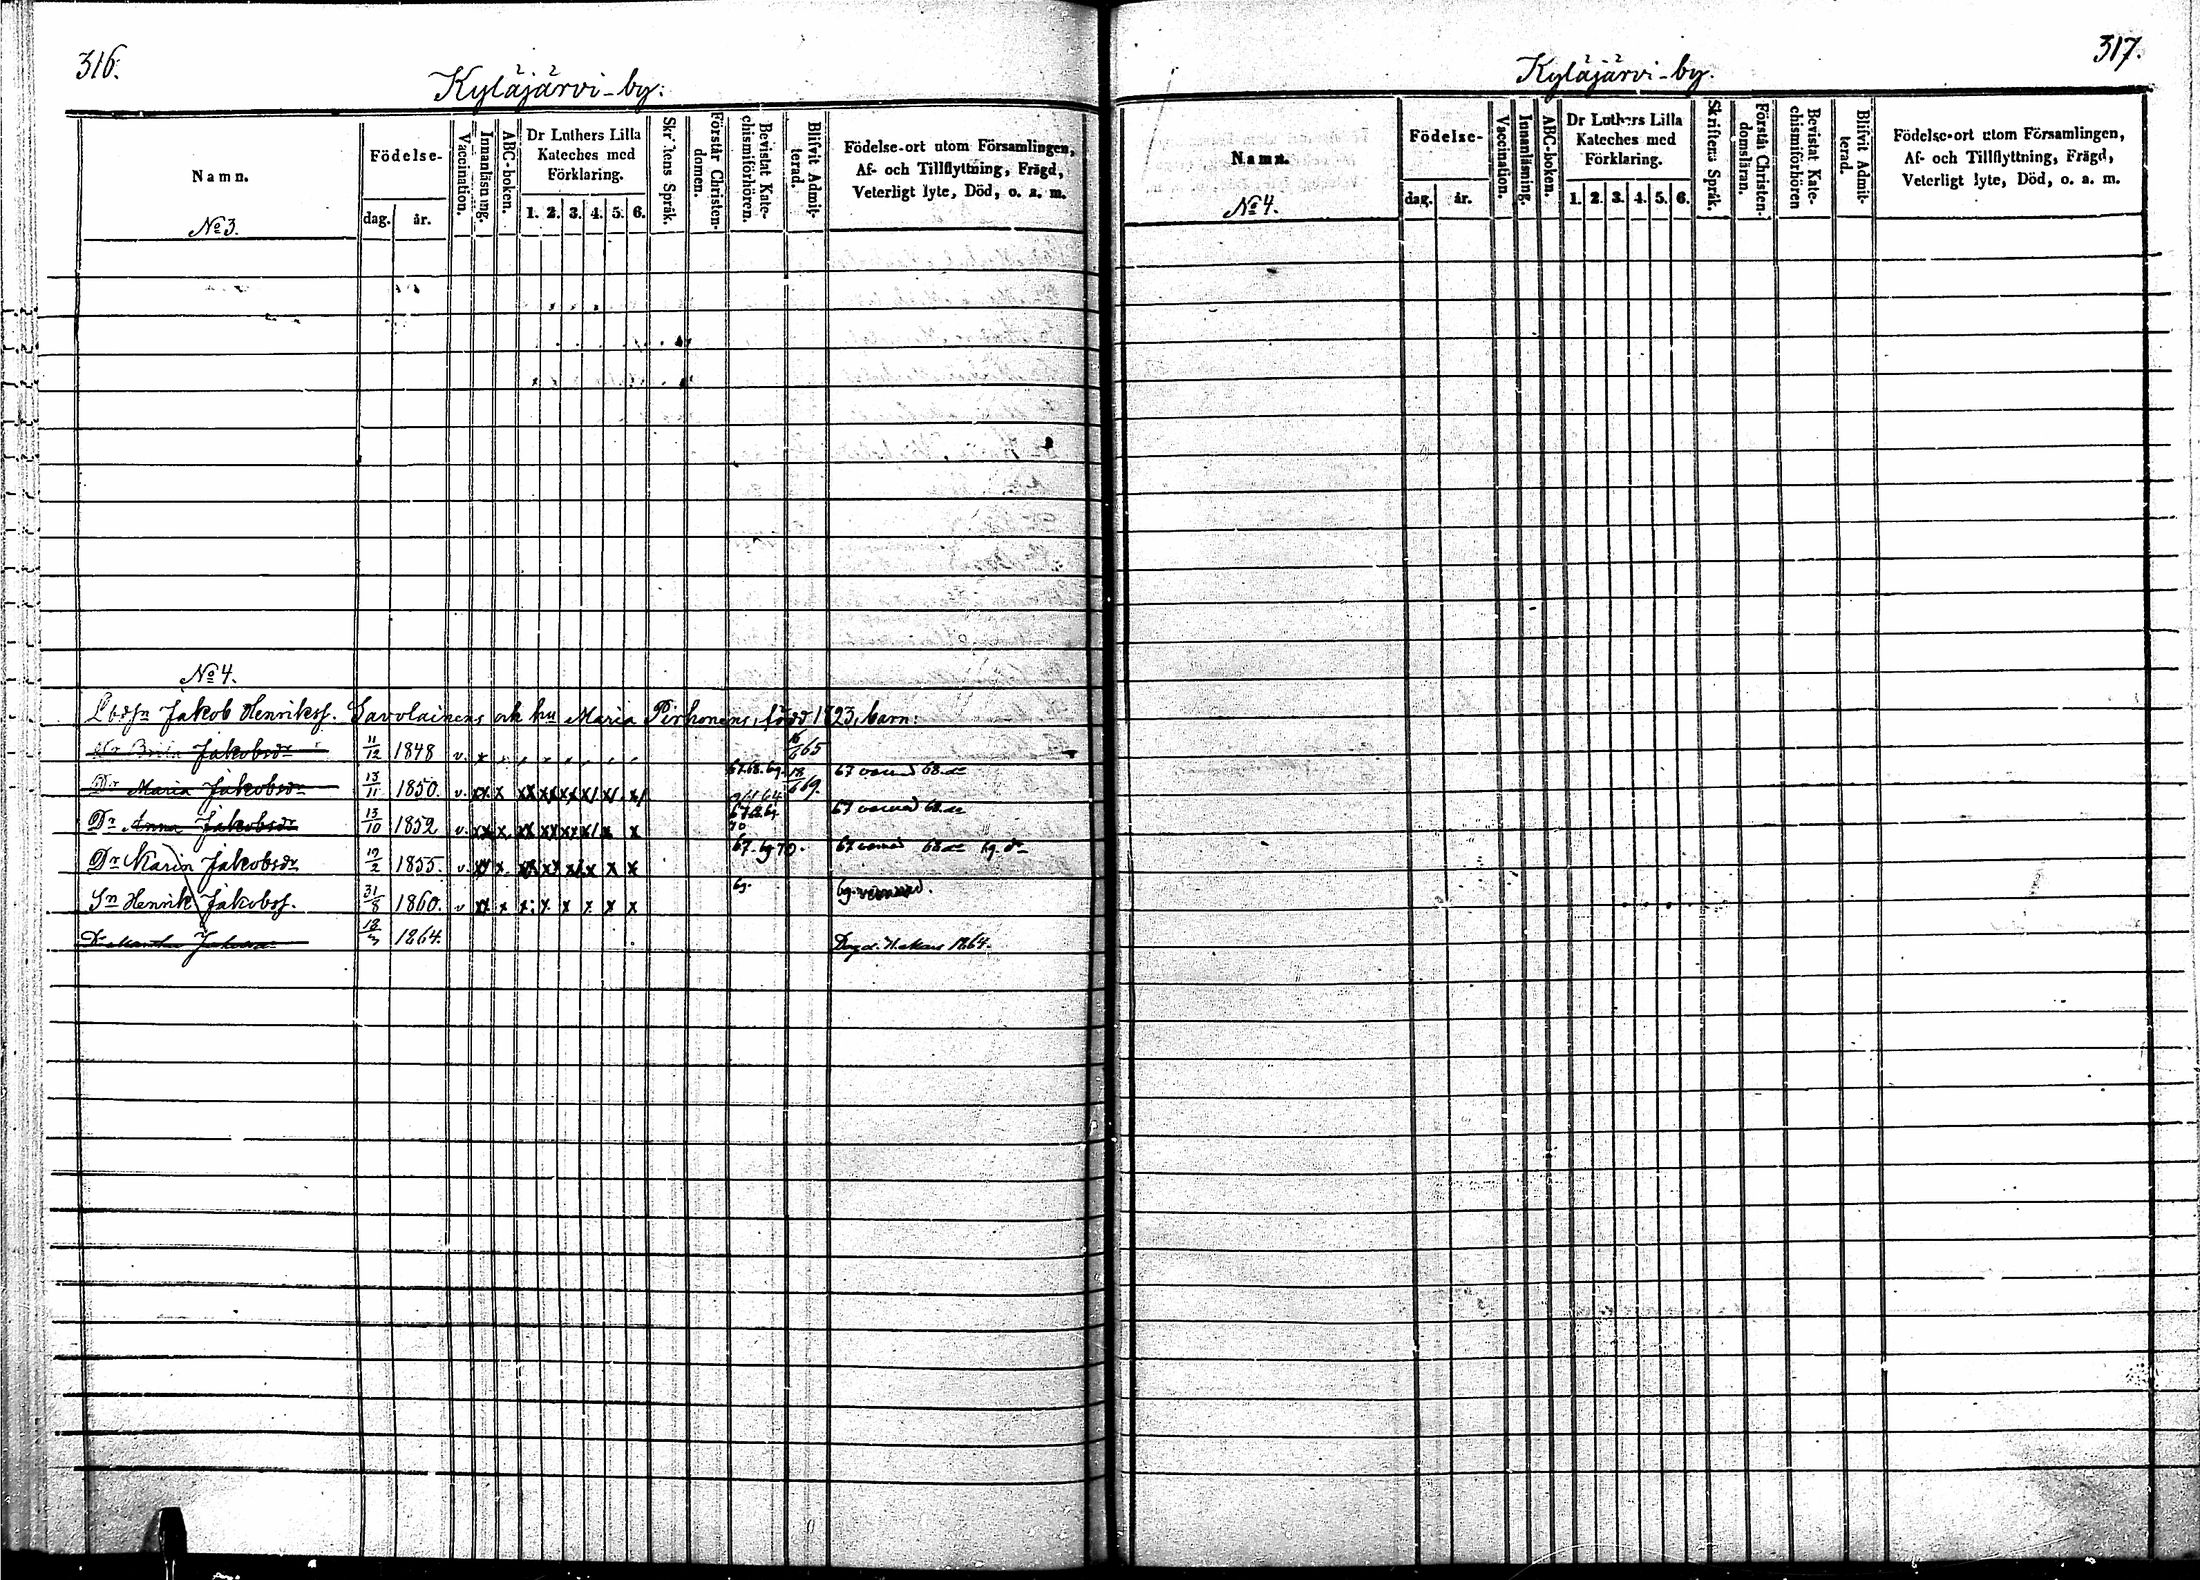 316.
Kyläjärvi-by.
Namn.
Födelse-
dag.
år.
Vaccination.
Innanläsning.
ABC-boken.
Dr Luthers Lilla
Kateches med
Förklaring.
1. 2. 3. 4. 5. 6.
Språk.
Förstår Christen-
domen.
Bevistat Kate-
chismiförhören.
Blifvit Admit-
terad.
Födelse-ort utom Församlingen,
Af- och Tillflyttning, Frägd,
Veterligt lyte, Död, o. a. m.
No 3.
No 4.
Jakob Henriksf. Savolainens och hu Maria Pirhonens, född 1823, barn:
Jakobsdr 11/12 1848 v. x 65
Dr Maria Jakobsdr 13/11 1850. v. xx x xx xx xx x/ x/. x/ 67.68.69. 18/6 69. 67 68. dr
Dr Anna Jakobsdr 13/10 1852 v. xx x. xx xx xx x/ x x 70 67 68. dr
Dr Karin Jakobsdr 19/2 1855. v. xx x. xx xx x/ x x x 67. 69 70. 67 68 dr 69. dr
Sn Henrik Jakobsf. 31/8 1860. v xx x x. x. x x. x x 69.
18/3 1864. 1864.
317.
Kyläjärvi-by.
Namn.
Födelse-
dag.
år.
Vaccination.
Innanläsning.
ABC-boken.
Dr Luthers Lilla
Kateches med
Förklaring.
1. 2. 3. 4. 5. 6.
Skriftens Språk.
Förstår Christen-
domsläran.
Bevistat Kate-
chismiförhören
Blifvit Admit-
terad.
Födelse-ort utom Församlingen,
Af- och Tillflyttning, Frägd,
Veterligt lyte, Död, o. a. m.
No 4.